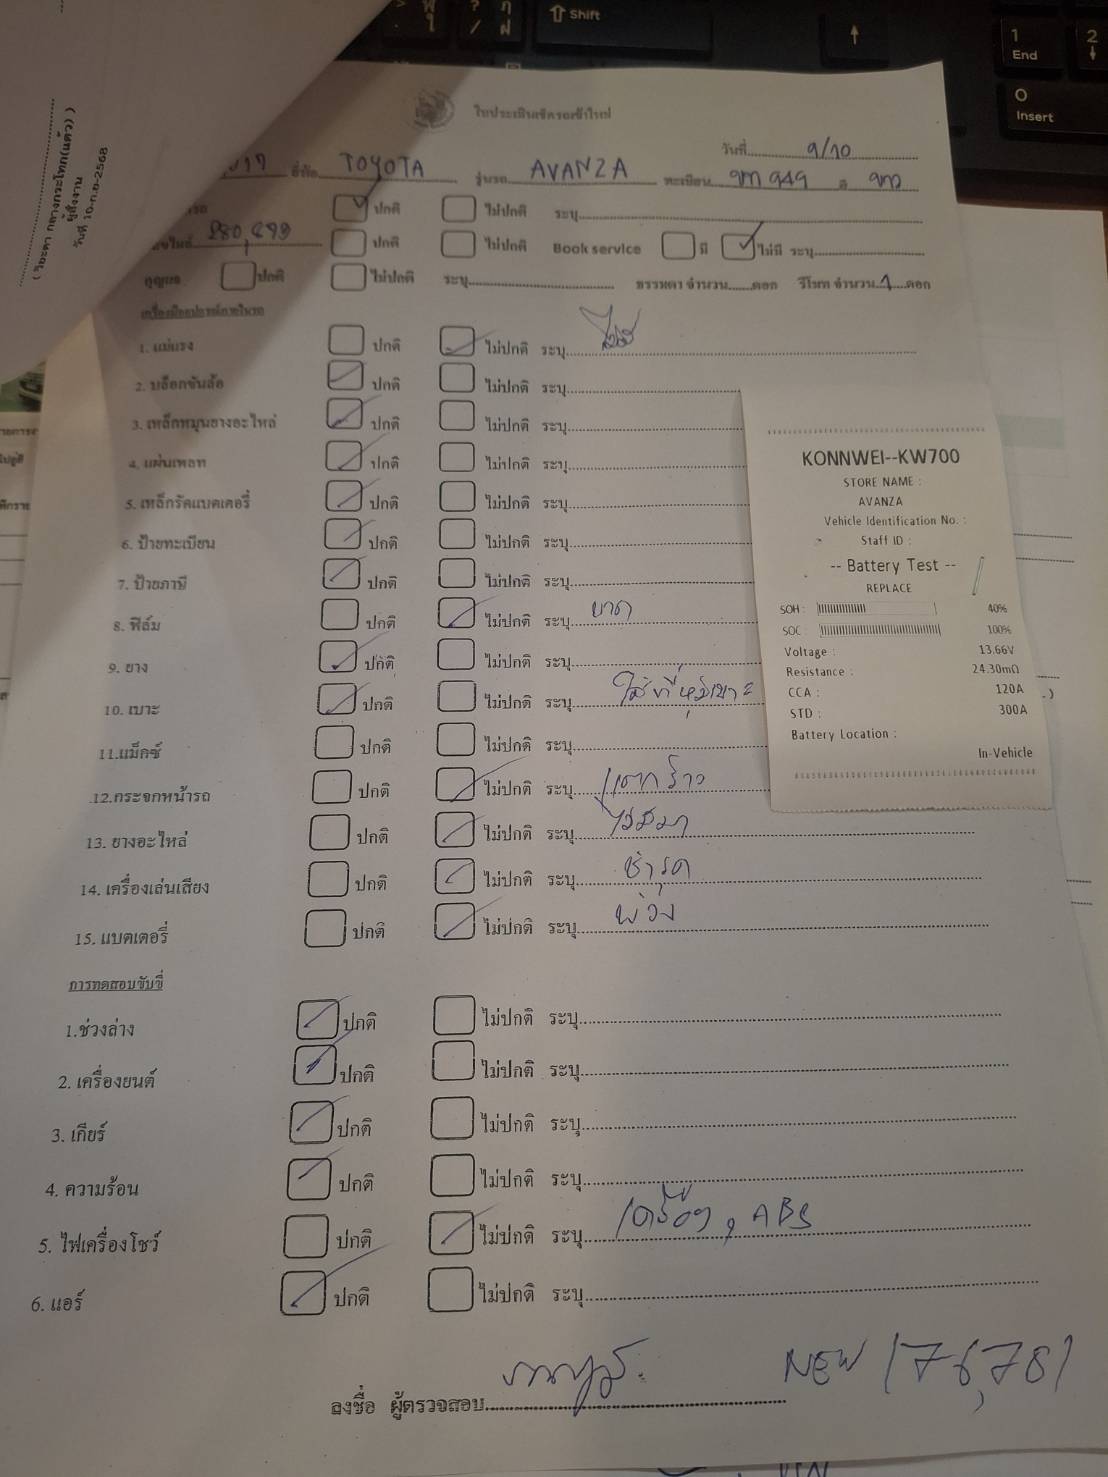 Shift
1
End
2
0
Insert
( วิอะดา กลางกระโทก(แต้ว) )
ผู้สั่งงาน
วันที่ 10-ก.ย-2568
ใบประเมินเช็ครถเข้าใหม่
วันที่ 9/10
ยี่ห้อ TOYOTA รุ่นรถ AVANZA ทะเบียน 949 สี ขาว
ปกติ ไม่ปกติ ระบุ
ปกติ ไม่ปกติ Book service มี ไม่มี ระบุ
กุญแจ ปกติ ไม่ปกติ ระบุ ธรรมดา จำนวน ดอก รีโมท จำนวน 1 ดอก
เครื่องมืออุปกรณ์ภายในรถ
1. แม่แรง ปกติ ไม่ปกติ ระบุ ไม่มี
2. บล็อกขันล้อ ปกติ ไม่ปกติ ระบุ
3. เหล็กหมุนยางอะไหล่ ปกติ ไม่ปกติ ระบุ
4. แผ่นเพลท ปกติ ไม่ปกติ ระบุ
5. เหล็กรัดแบตเตอรี่ ปกติ ไม่ปกติ ระบุ
6. ป้ายทะเบียน ปกติ ไม่ปกติ ระบุ
7. ป้ายภาษี ปกติ ไม่ปกติ ระบุ
8. ฟิล์ม ปกติ ไม่ปกติ ระบุ ขาด
9. ยาง ปกติ ไม่ปกติ ระบุ
10. เบาะ ปกติ ไม่ปกติ ระบุ ใส่ที่หุ้มเบาะ
11.แม็กซ์ ปกติ ไม่ปกติ ระบุ
12.กระจกหน้ารถ ปกติ ไม่ปกติ ระบุ แตกร้าว
13. ยางอะไหล่ ปกติ ไม่ปกติ ระบุ
14. เครื่องเล่นเสียง ปกติ ไม่ปกติ ระบุ ชำรุด
15. แบตเตอรี่ ปกติ ไม่ปกติ ระบุ พ่วง
การทดสอบขับขี่
1.ช่วงล่าง ปกติ ไม่ปกติ ระบุ
2. เครื่องยนต์ ปกติ ไม่ปกติ ระบุ
3. เกียร์ ปกติ ไม่ปกติ ระบุ
4. ความร้อน ปกติ ไม่ปกติ ระบุ
5. ไฟเครื่องโชว์ ปกติ ไม่ปกติ ระบุ เครื่อง, ABS
6. แอร์ ปกติ ไม่ปกติ ระบุ
ลงชื่อ ผู้ตรวจสอบ
NEW
KONNWEI--KW700
STORE NAME :
AVANZA
Vehicle Identification No. :
Staff ID :
-- Battery Test --
REPLACE
SOH : 40%
SOC : 100%
Voltage : 13.66V
Resistance : 24.30mΩ
CCA : 120A
STD : 300A
Battery Location :
In-Vehicle